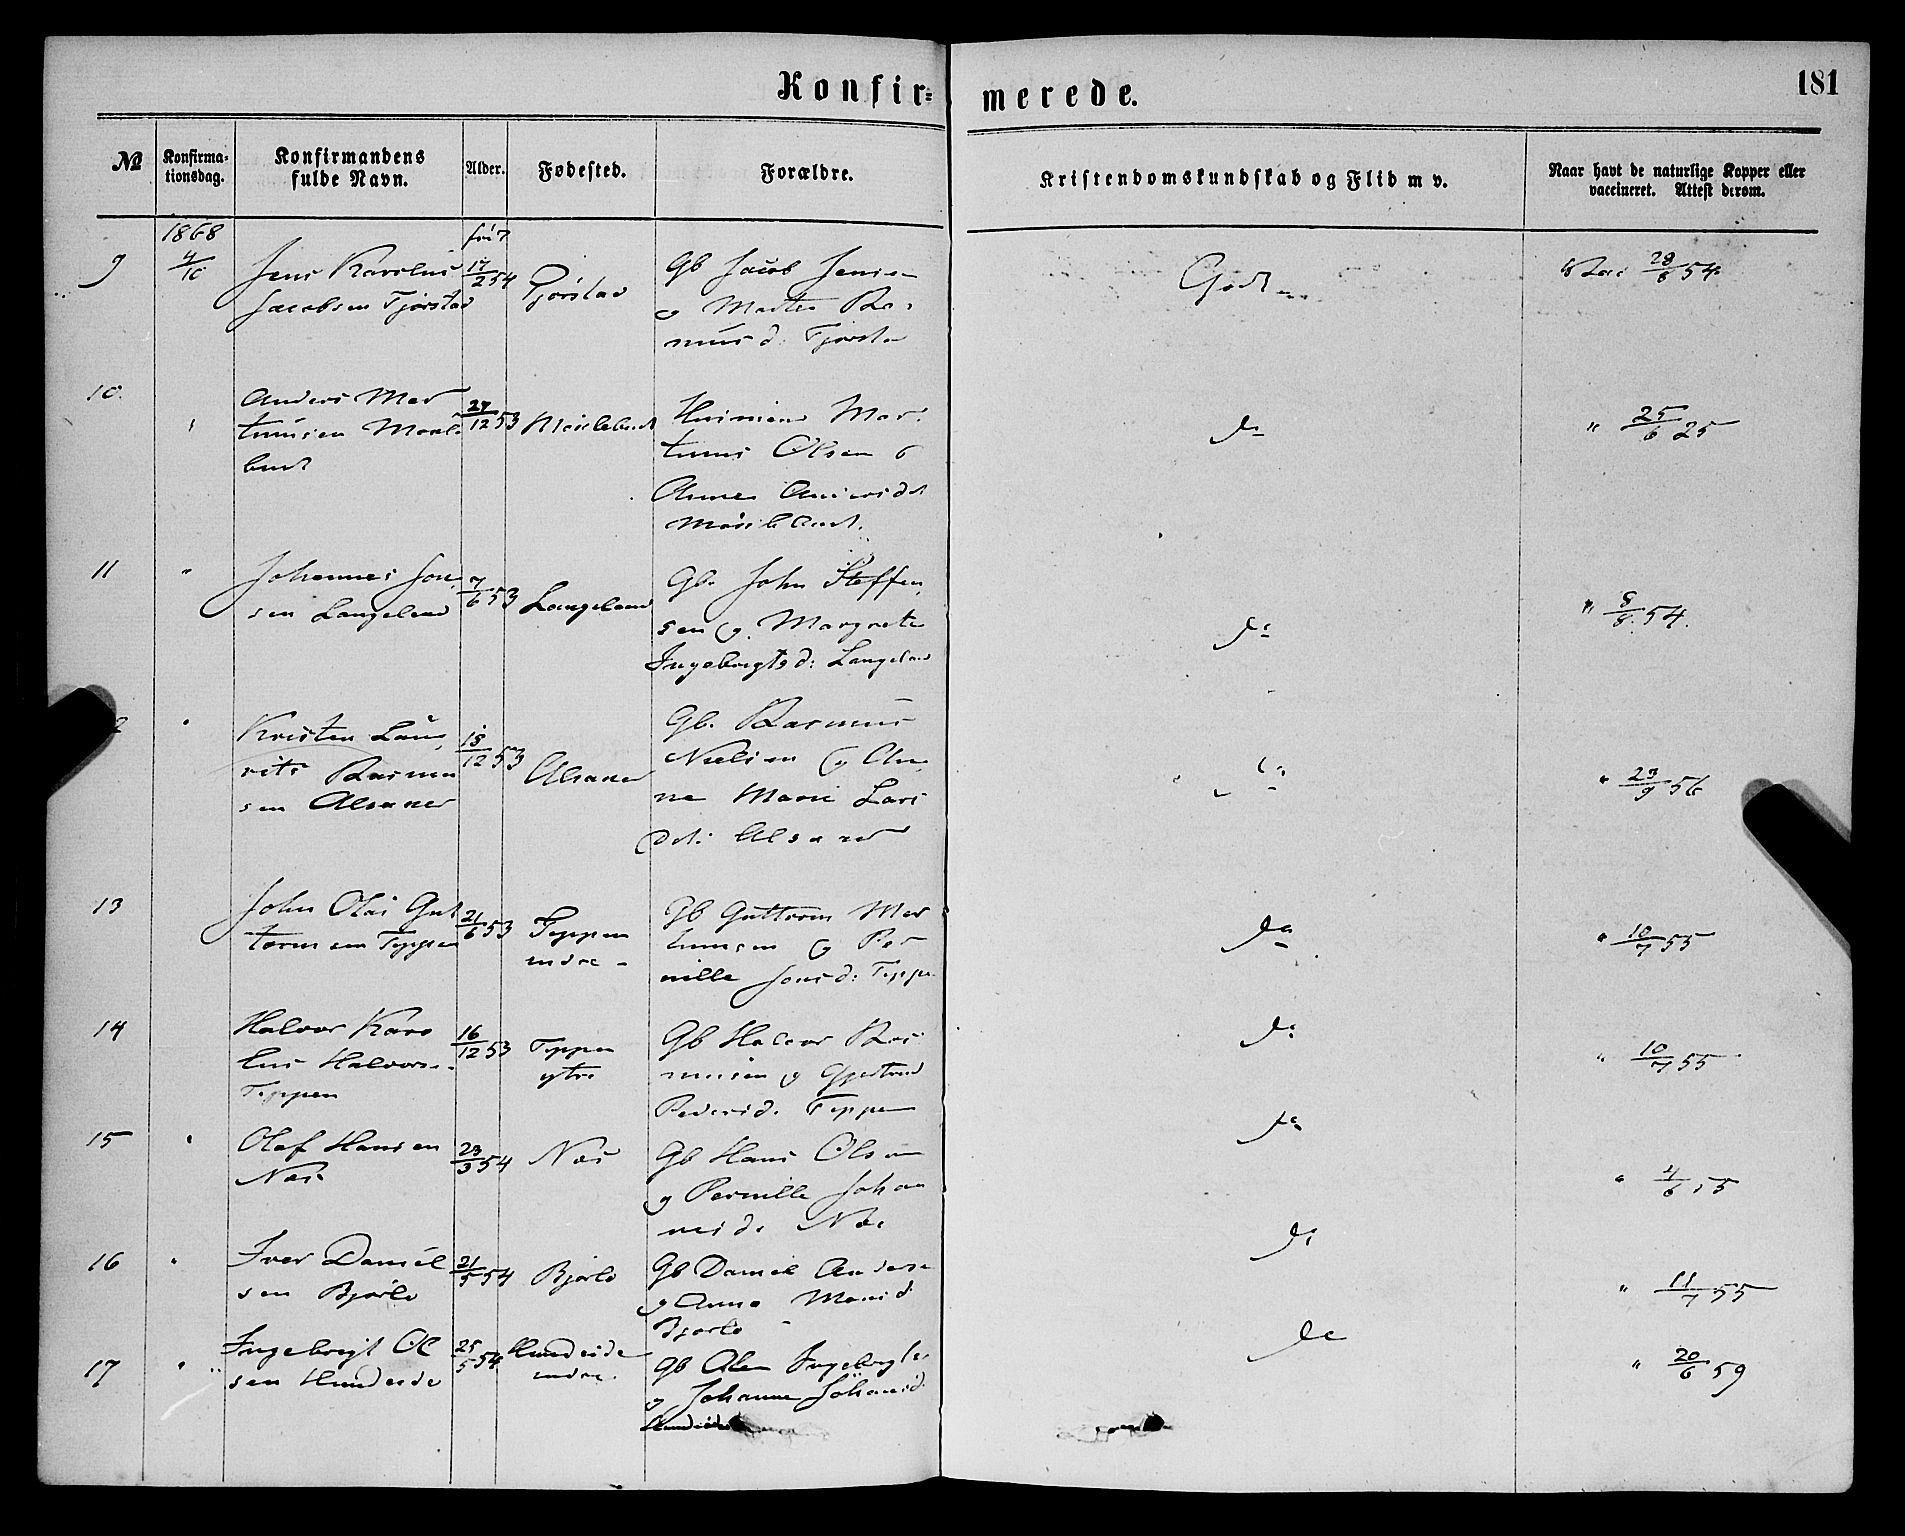 Konfir=
merede.
181
№
Konfirma=
tionsdag.
Konfirmandens
fulde Navn.
Alder.
Fødested.
Forældre.
Kristendomskundskab og Flid m v.
Naar havt de naturlige Kopper eller
vaccineret. Attest derom.
1868
9
4/10
Jens Karolus
Jacobsen Tjørstad
17/2 54
Tjørstad
Gb Jacob Jensen
Ras
musd: Tjørsta
Godt
28/6 54
10
Anders Mar
tinusen
27/12 53
Husmand Mar
tinus Olsen o
Anne
do
" 25/6 25
11
"
Johannes Jon
sen Langeland
7/6 53
Langeland
Gb. John Steffen
sen og Margrete
Ingebrigtsd: Langeland
do
" 8/8 54.
2
"
Kristen Lau
rits Rasmu
sen Alsaker
15/12 53
Alsaker
Gb. Rasmus
Nielsen og An
ne Marie Lars
Dot: Alsaker
do
" 23/9 56
13
John Olai Gut
tormsen Teppen
21/6 53
Teppen
indre
Gb Guttorm Mar
tinusen og Per
nille Jonsd: Teppe
do
" 10/7 55
14
Halvor Karo
lus Halvors
Teppen
16/12 53
Teppen
ytre
Gb Halvor Ras
musen og Gjertrud
Pedersd. Teppen
do
" 10/7 55
15
"
Olaf Hansen
Næs
23/3 54
Næs
Gb Hans Olsen
og Pernille Johan
nesd. Næs
do
" 4/6 55
16
"
Iver Daniel
sen Bjørlo
21/5 54
Bjørlo
Gb Daniel Anders
og Anna Monsd
Bjørlo
do
" 11/7 55
17
"
Ingebrigt Ol
sen Hundeide
25/5 54
Hundeide
indre.
Gb Ole Ingebrigts
og Johanne Johansd.
Hundeide
do
" 20/6 59